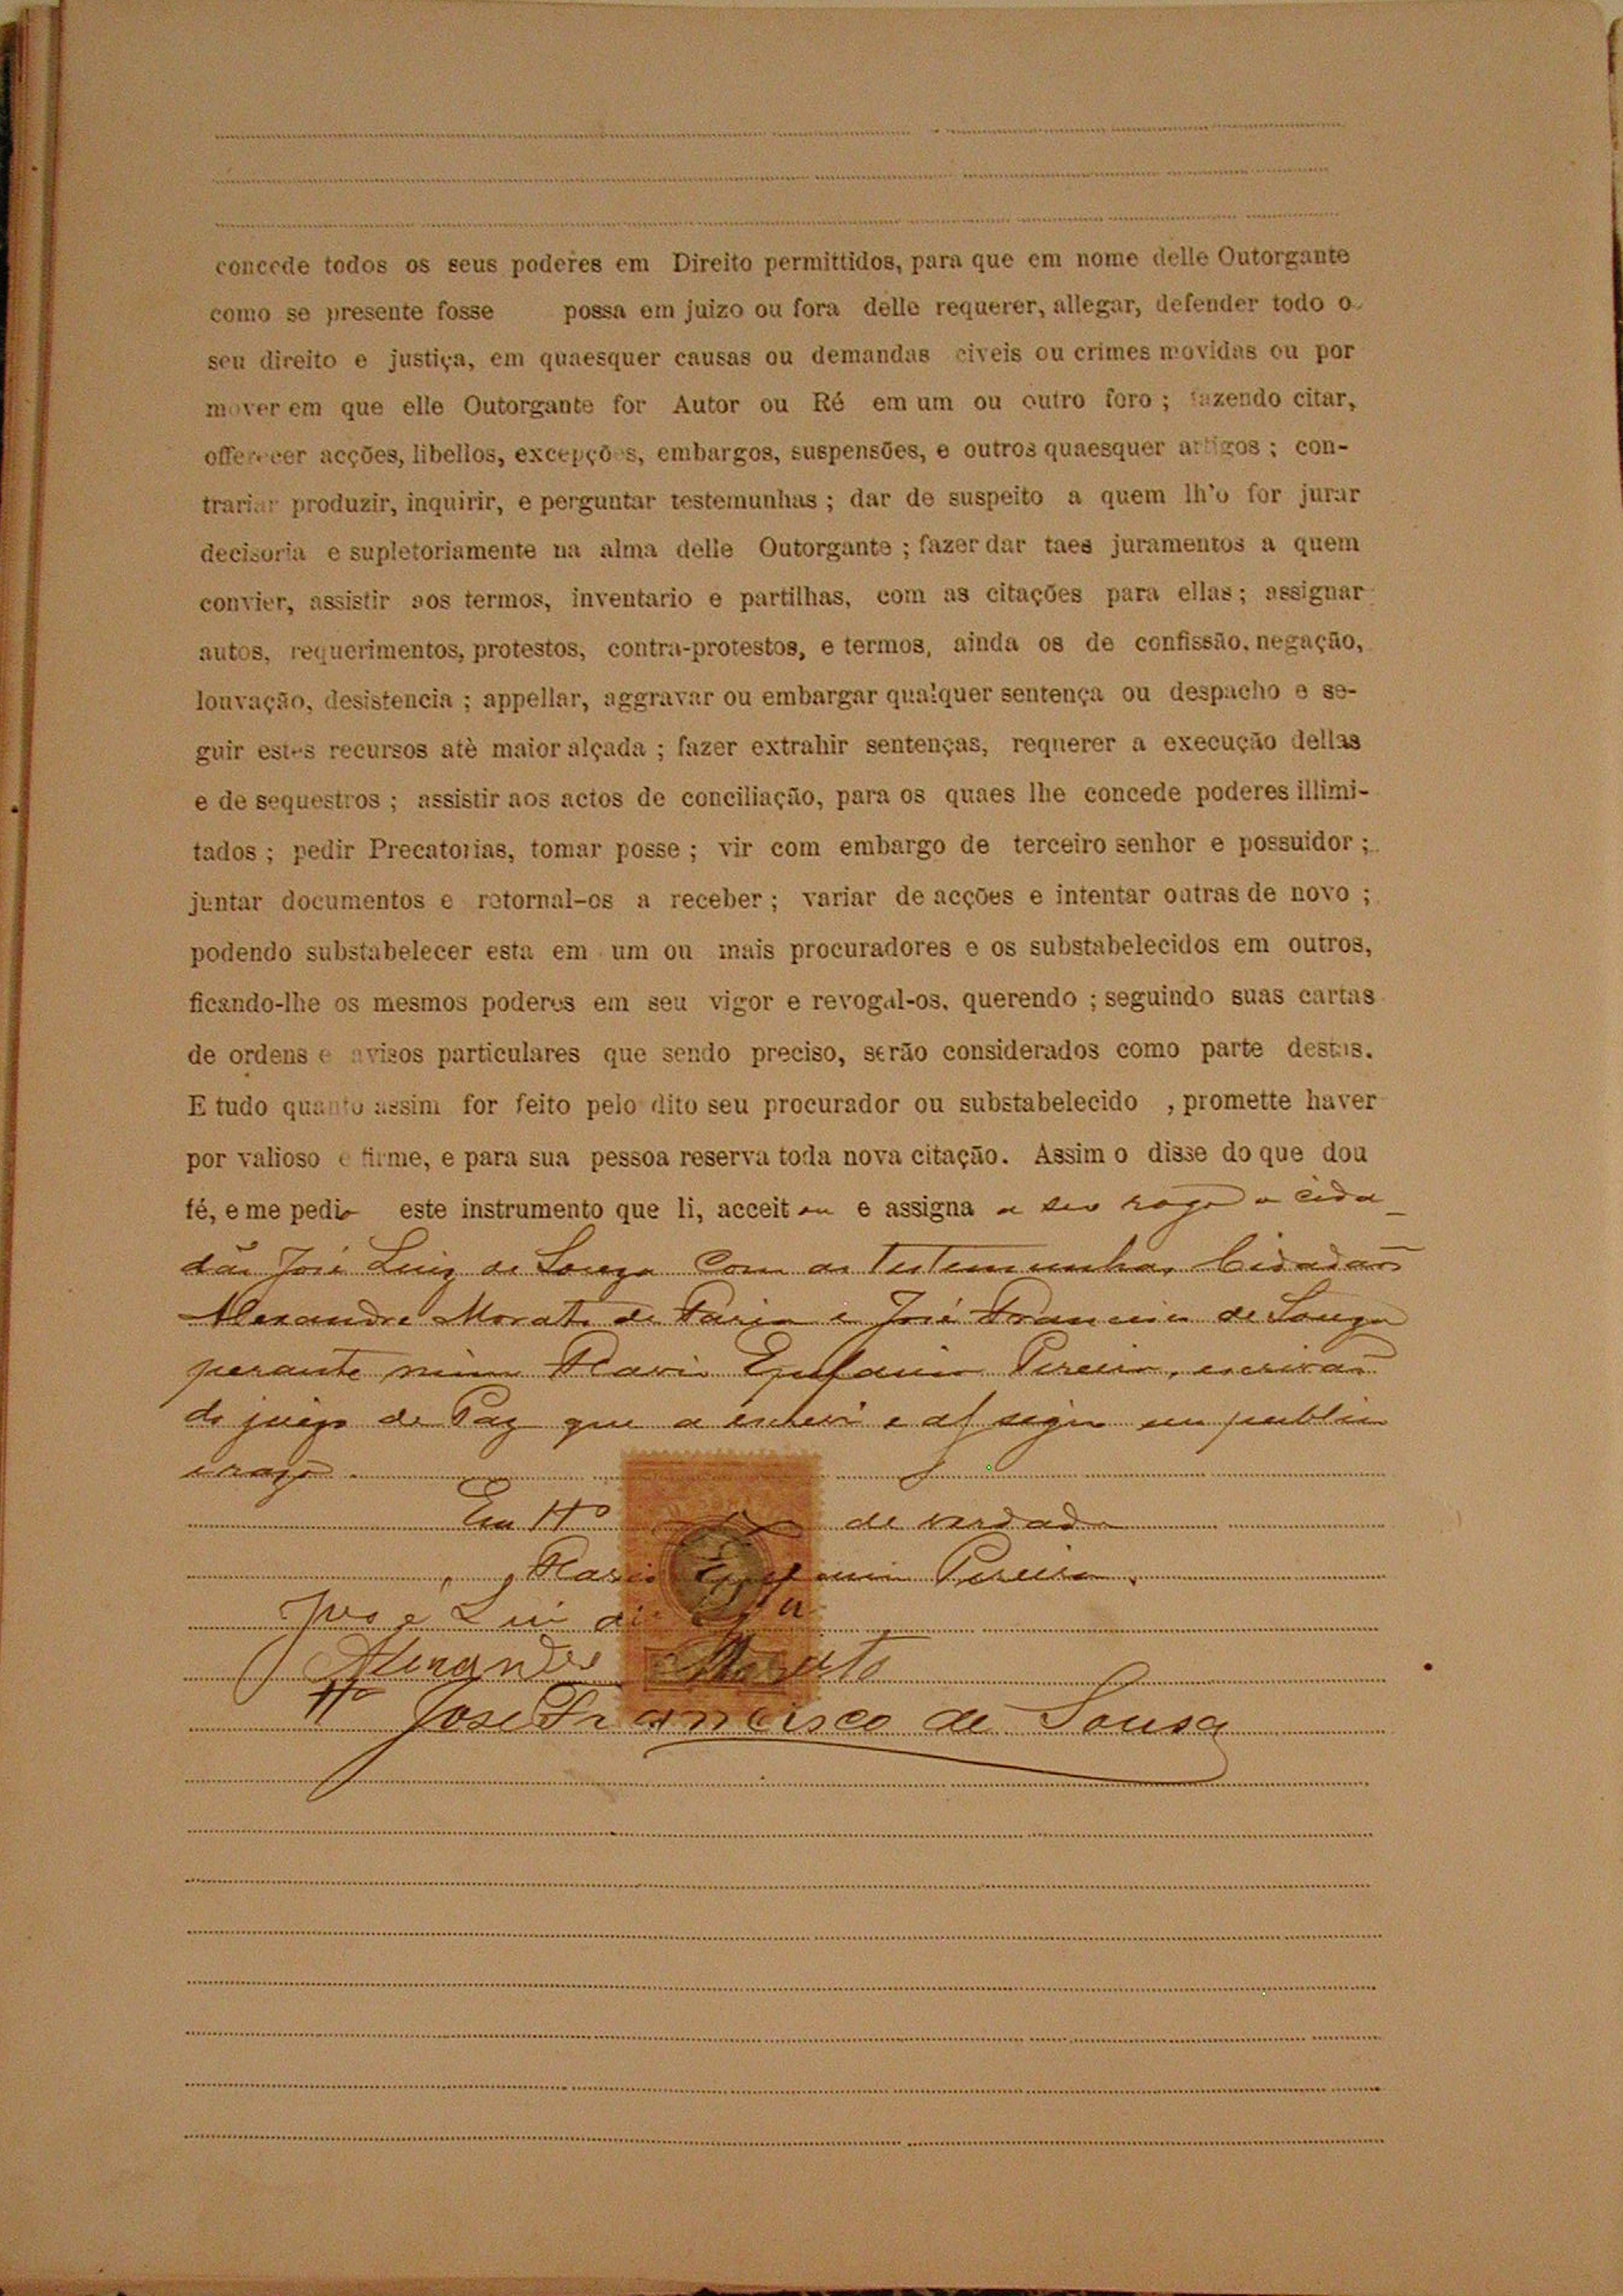 concede todos os seus poderes em Direito permittidos, para que em nome delle Outorgante
como se presente fosse possa em juizo ou fora delle requerer, allegar, defender todo o
seu direito e justiça, em quaesquer causas ou demandas civeis ou crimes movidas ou por
mover em que elle Outorgante for Autor ou Ré em um ou outro foro ; fazendo citar,
offerecer acções, libellos, excepções, embargos, suspensões, e outros quaesquer artigos ; con-
trariar produzir, inquirir, e perguntar testemunhas ; dar de suspeito a quem lh'o for jurar
decisoria e supletoriamente na alma delle Outorgante ; fazer dar taes juramentos a quem
convier, assistir aos termos, inventario e partilhas, com as citações para ellas ; assignar
autos, requerimentos, protestos, contra-protestos, e termos, ainda os de confissão, negação,
louvação, desistencia ; appellar, aggravar ou embargar qualquer sentença ou despacho e se-
guir estes recursos atè maior alçada ; fazer extrahir sentenças, requerer a execução dellas
e de sequestros ; assistir aos actos de conciliação, para os quaes lhe concede poderes illimi-
tados ; pedir Precatorias, tomar posse ; vir com embargo de terceiro senhor e possuidor ;
juntar documentos e retornal-os a receber ; variar de acções e intentar outras de novo ;
podendo substabelecer esta em um ou mais procuradores e os substabelecidos em outros,
ficando-lhe os mesmos poderes em seu vigor e revogal-os, querendo ; seguindo suas cartas
de ordens e avisos particulares que sendo preciso, serão considerados como parte destas.
E tudo quanto assim for feito pelo dito seu procurador ou substabelecido , promette haver
por valioso e firme, e para sua pessoa reserva toda nova citação. Assim o disse do que dou
fé, e me pedio este instrumento que li, acceitou e assigna a seu rogo o cida
dão José Luiz de Souza com as testemunhas Cidadãos
Alexandre Morato de Faria e José Francisco de Souza
perante mim Epifanio Pereira, escrivão
do juizo de Paz que a escrevi e assigno em publico
e raso.
Em de verdade
Pereira
Jose Lui de
Alexandre Morato
José Francisco de Sousa